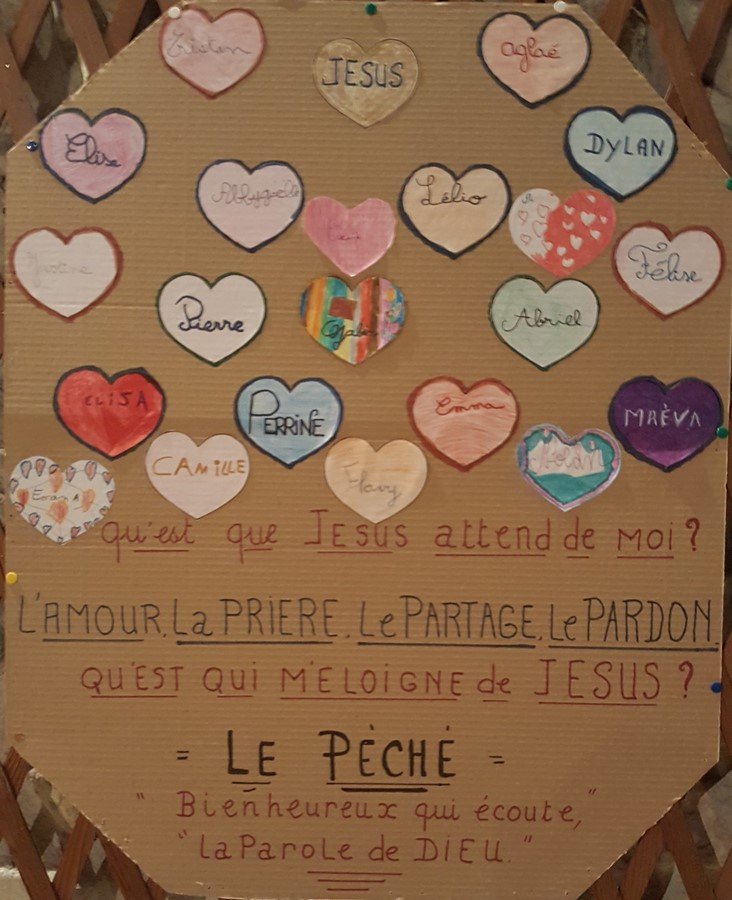 Tristan
JESUS
aglaé
Elise
DYLAN
Abbygaëlle
Lélio
Justine
Félise
Pierre
Abriel
ELISA
PERRINE
Emma
MAËVA
CAMILLE
Flavy
qu'est que JESUS attend de MOI ?
L'AMOUR. La PRIERE. Le PARTAGE. Le PARDON.
QU'EST QUI M'ELOIGNE de JESUS ?
= LE PÈCHÉ =
" Bienheureux qui écoute, "
" la Parole de DIEU. "